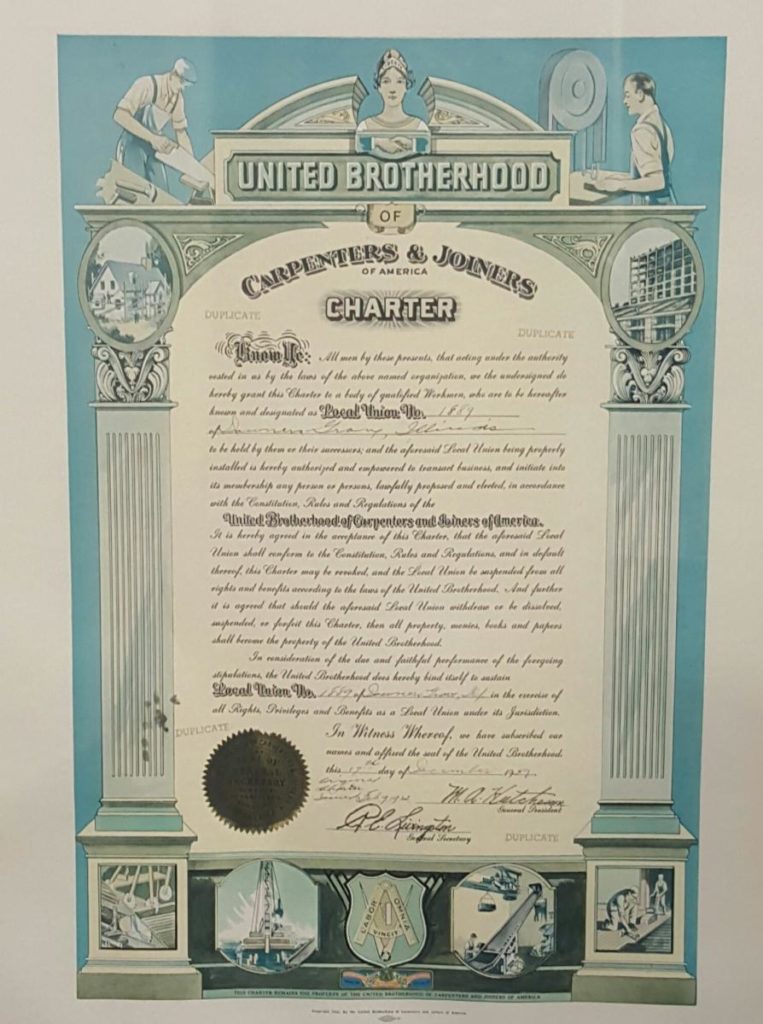 UNITED BROTHERHOOD
OF
CARPENTERS & JOINERS
OF AMERICA
CHARTER
DUPLICATE
DUPLICATE
Know Ye: All men by these presents, that acting under the authority
vested in us by the laws of the above named organization, we the undersigned do
hereby grant this Charter to a body of qualified Workmen, who are to be hereafter
known and designated as Local Union No. 1889
of Downers Grove, Illinois
to be held by them or their successors; and the aforesaid Local Union being properly
installed is hereby authorized and empowered to transact business, and initiate into
its membership any person or persons, lawfully proposed and elected, in accordance
with the Constitution, Rules and Regulations of the
United Brotherhood of Carpenters and Joiners of America.
It is hereby agreed in the acceptance of this Charter, that the aforesaid Local
Union shall conform to the Constitution, Rules and Regulations, and in default
thereof, this Charter may be revoked, and the Local Union be suspended from all
rights and benefits according to the laws of the United Brotherhood. And further
it is agreed that should the aforesaid Local Union withdraw or be dissolved,
suspended, or forfeit this Charter, then all property, monies, books and papers
shall become the property of the United Brotherhood.
In consideration of the due and faithful performance of the foregoing
stipulations, the United Brotherhood does hereby bind itself to sustain
Local Union No. 1889 of Downers Grove, Ill. in the exercise of
all Rights, Privileges and Benefits as a Local Union under its Jurisdiction.
DUPLICATE
In Witness Whereof, we have subscribed our
names and affixed the seal of the United Brotherhood,
this 17th day of December
Original
Charter
M. A. Hutcheson
General President
R. E. Livingston
General Secretary
DUPLICATE
LABOR OMNIA
VINCIT
THIS CHARTER REMAINS THE PROPERTY OF THE UNITED BROTHERHOOD OF CARPENTERS AND JOINERS OF AMERICA